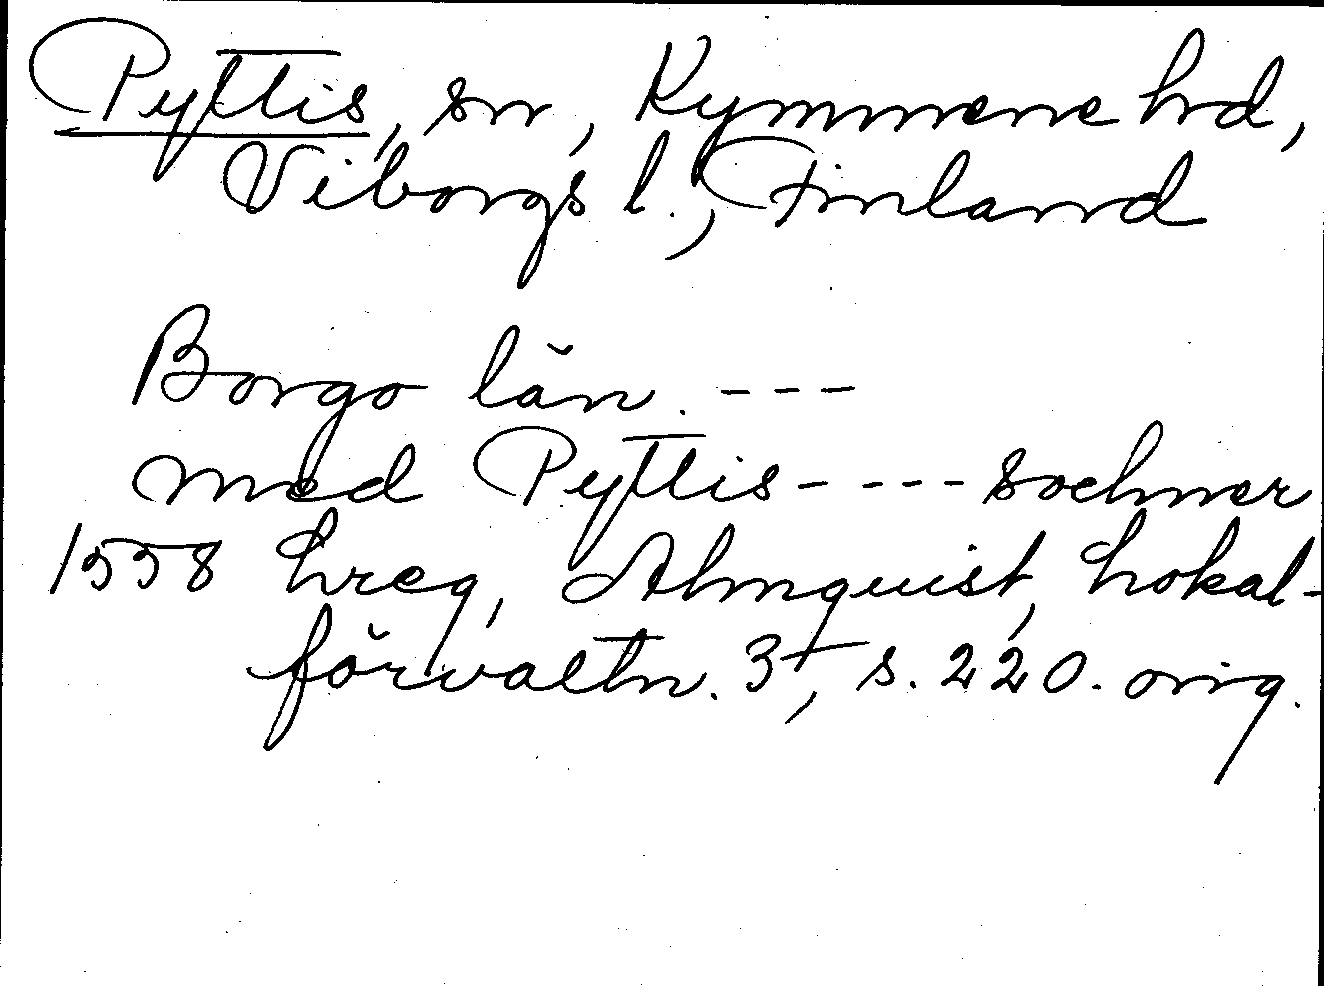 Pyttis, sn, Kymmene hd,
Viborgs l., Finland
Borgo län. ---
med Pyttis ---- sochner
1558 hreg, Almquist, Lokal-
förvaltn. 3, s. 220. orig.